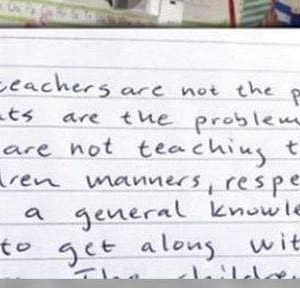 teachers are not the p
ts are the problem
are not teaching t
dren manners, respe
a general knowle
to get along wit
The children